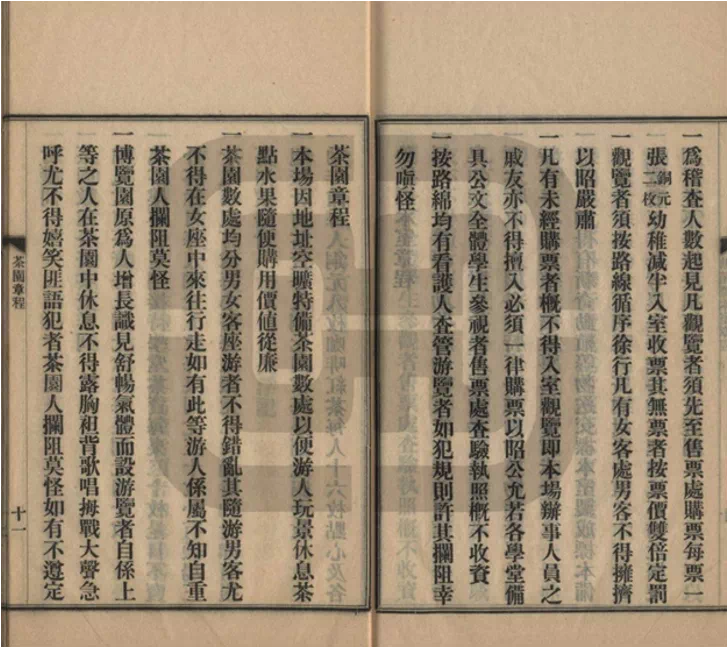 一爲稽查人數起見凡觀覽者須先至售票處購票每票一
張銅元二枚幼稚減半入室收票其無票者按票價雙倍定罰
一觀覽者須按路線循序徐行凡有女客處男客不得擁擠
以昭嚴肅
一凡有未經購票者概不得入室觀覽即本場辦事人員之
戚友亦不得擅入必須一律購票以昭公允若各學堂備
具公文全體學生參視者售票處查驗執照概不收資
一按路綿均有看護人查管游覽者如犯規則許其攔阻幸
勿嗔怪
茶園章程
一本場因地址空曠特備茶園數處以便游人玩景休息茶
點水果隨便購用價値從廉
一茶園數處均分男女客座游者不得錯亂其隨游男客尤
不得在女座中來往行走如有此等游人係屬不知自重
茶園人攔阻莫怪
一博覽園原爲人增長識見舒暢氣體而設游覽者自係上
等之人在茶園中休息不得露胸袒背歌唱拇戰大聲急
呼尤不得嬉笑匪語犯者茶園人攔阻莫怪如有不遵定
茶園章程
十一